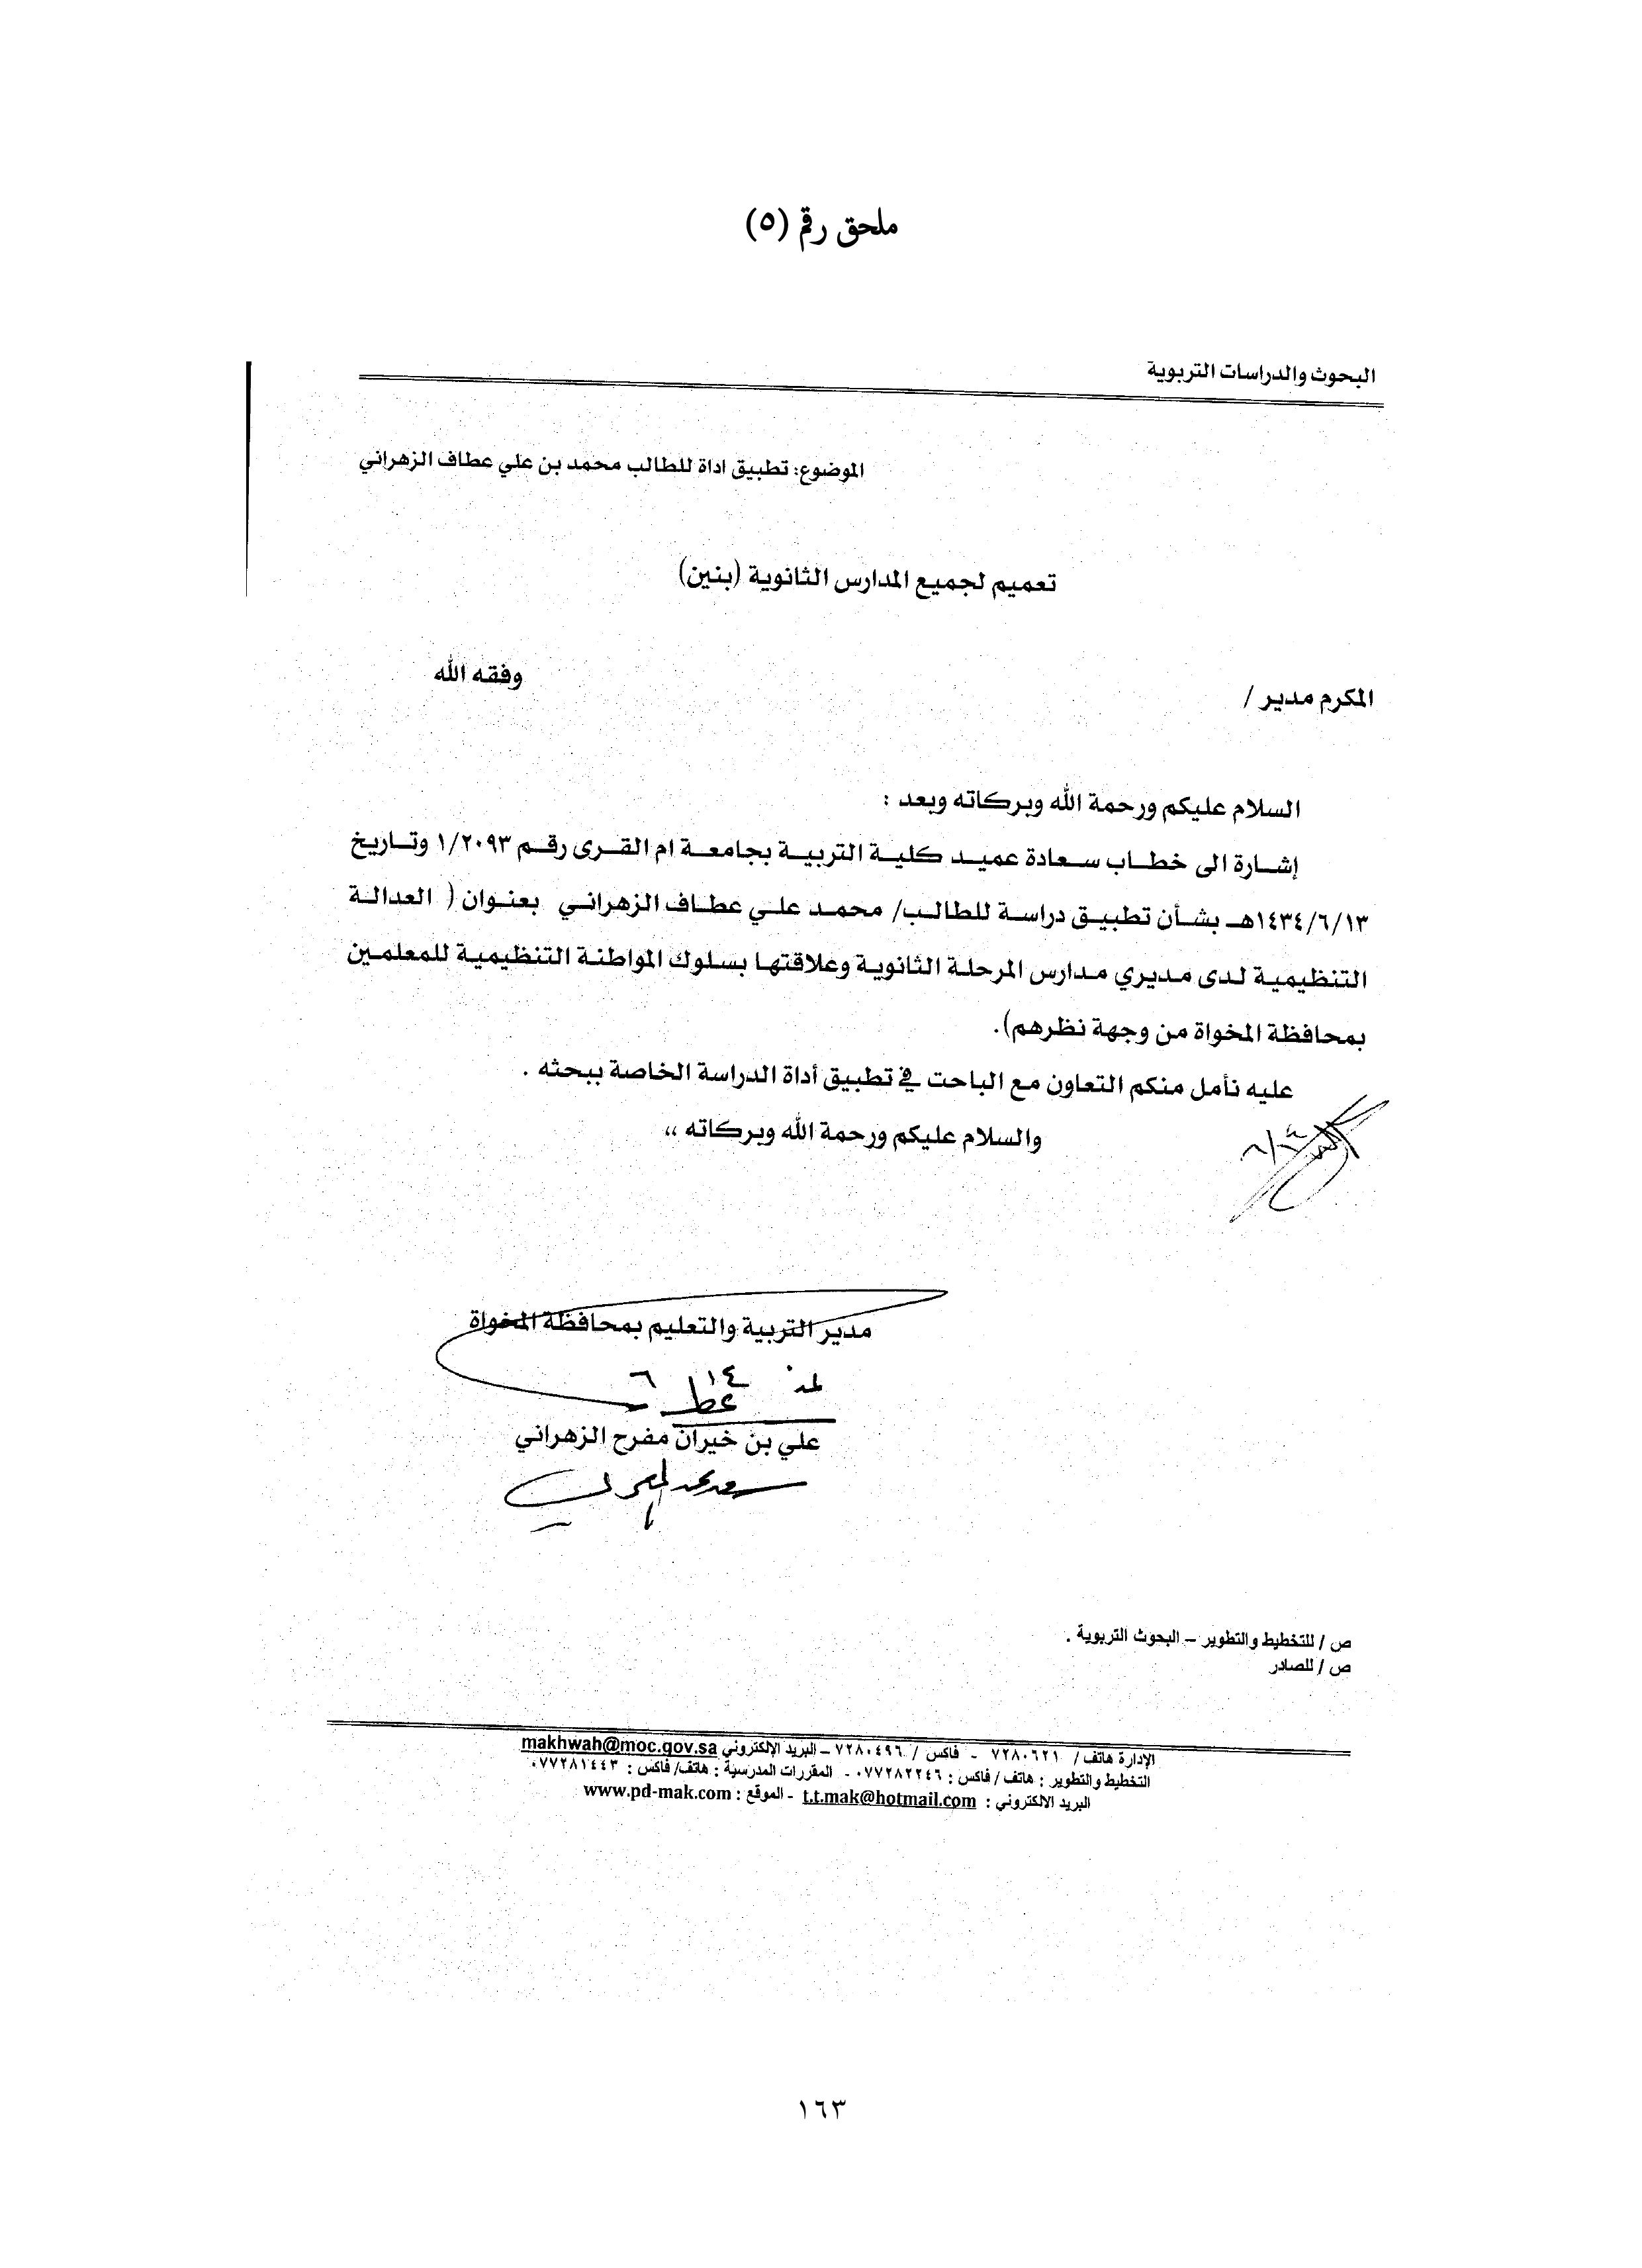 ملحق رقم (٥)
البحوث والدراسات التربوية
الموضوع: تطبيق اداة للطالب محمد بن علي عطاف الزهراني
تعميم لجميع المدارس الثانوية (بنين)
المكرم مدير / وفقه الله
السلام عليكم ورحمة الله وبركاته وبعد :
إشارة الى خطاب سعادة عميد كلية التربية بجامعة ام القرى رقم ١/٢٠٩٣ وتاريخ
١٤٣٤/٦/١٣هـ بشأن تطبيق دراسة للطالب/ محمد علي عطاف الزهراني بعنوان ( العدالة
التنظيمية لدى مديري مدارس المرحلة الثانوية وعلاقتها بسلوك المواطنة التنظيمية للمعلمين
بمحافظة المخواة من وجهة نظرهم).
عليه نأمل منكم التعاون مع الباحث في تطبيق أداة الدراسة الخاصة ببحثه .
والسلام عليكم ورحمة الله وبركاته ،،
مدير التربية والتعليم بمحافظة المخواة
علي بن خيران مفرح الزهراني
ص / للتخطيط والتطوير – البحوث التربوية .
ص / للصادر
الإدارة هاتف / ٧٢٨٠٦٢١ - فاكس / ٧٢٨٠٤٩٦ – البريد الإلكتروني makhwah@moc.gov.sa
التخطيط والتطوير : هاتف / فاكس : ٠٧٧٢٨٢٢٤٦ - المقررات المدرسية : هاتف/ فاكس : ٠٧٧٢٨١٤٤٣
البريد الالكتروني : t.t.mak@hotmail.com - الموقع : www.pd-mak.com
١٦٣